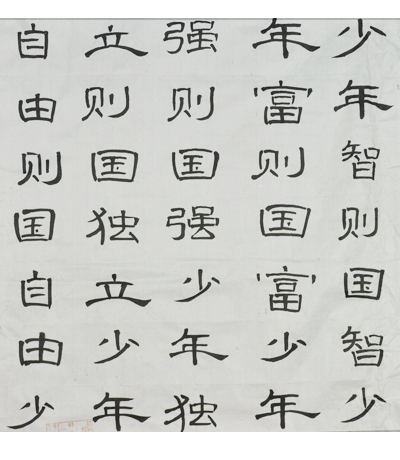 少年智则国智少
年富则国富少年
强则国强少年独
立则国独立少年
自由则国自由少